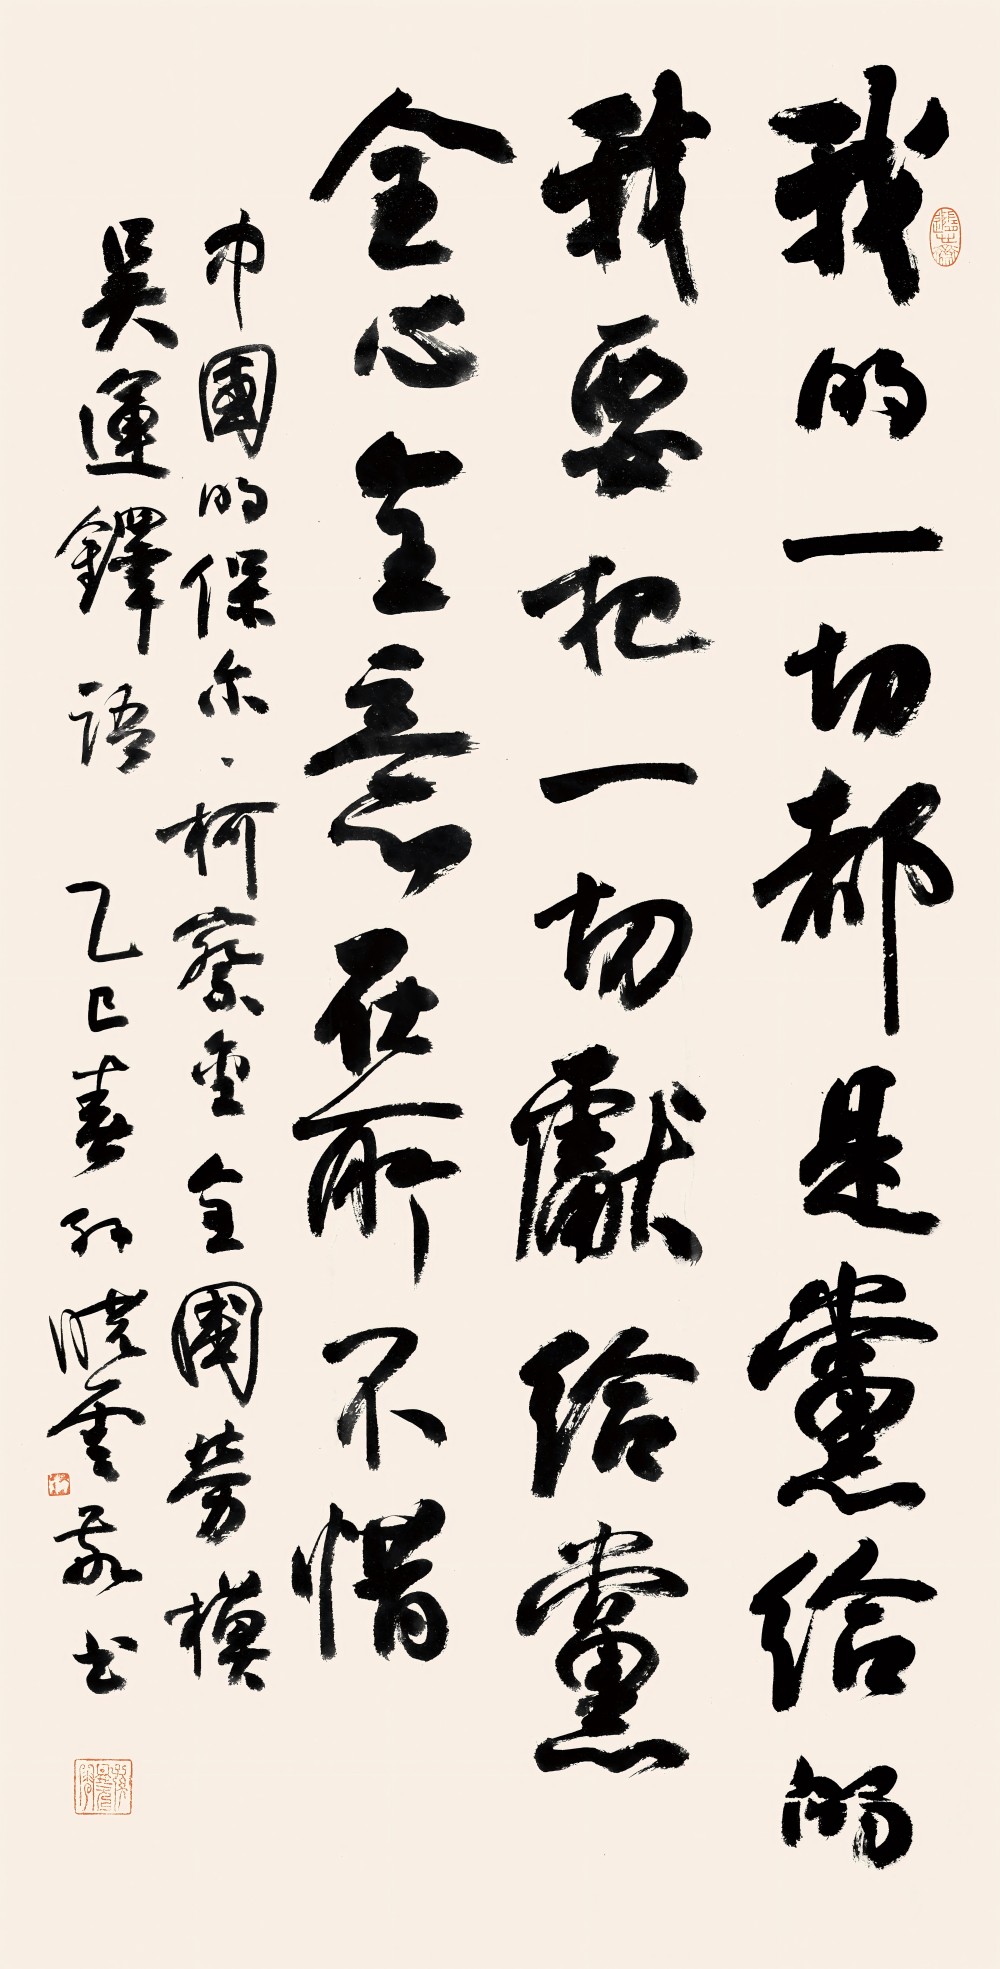 我的一切都是黨給的
我要把一切獻給黨
全心全意在所不惜
中國的保尔·柯察金全國劳模
吴運鐸語 乙巳春孙晓雲敬书